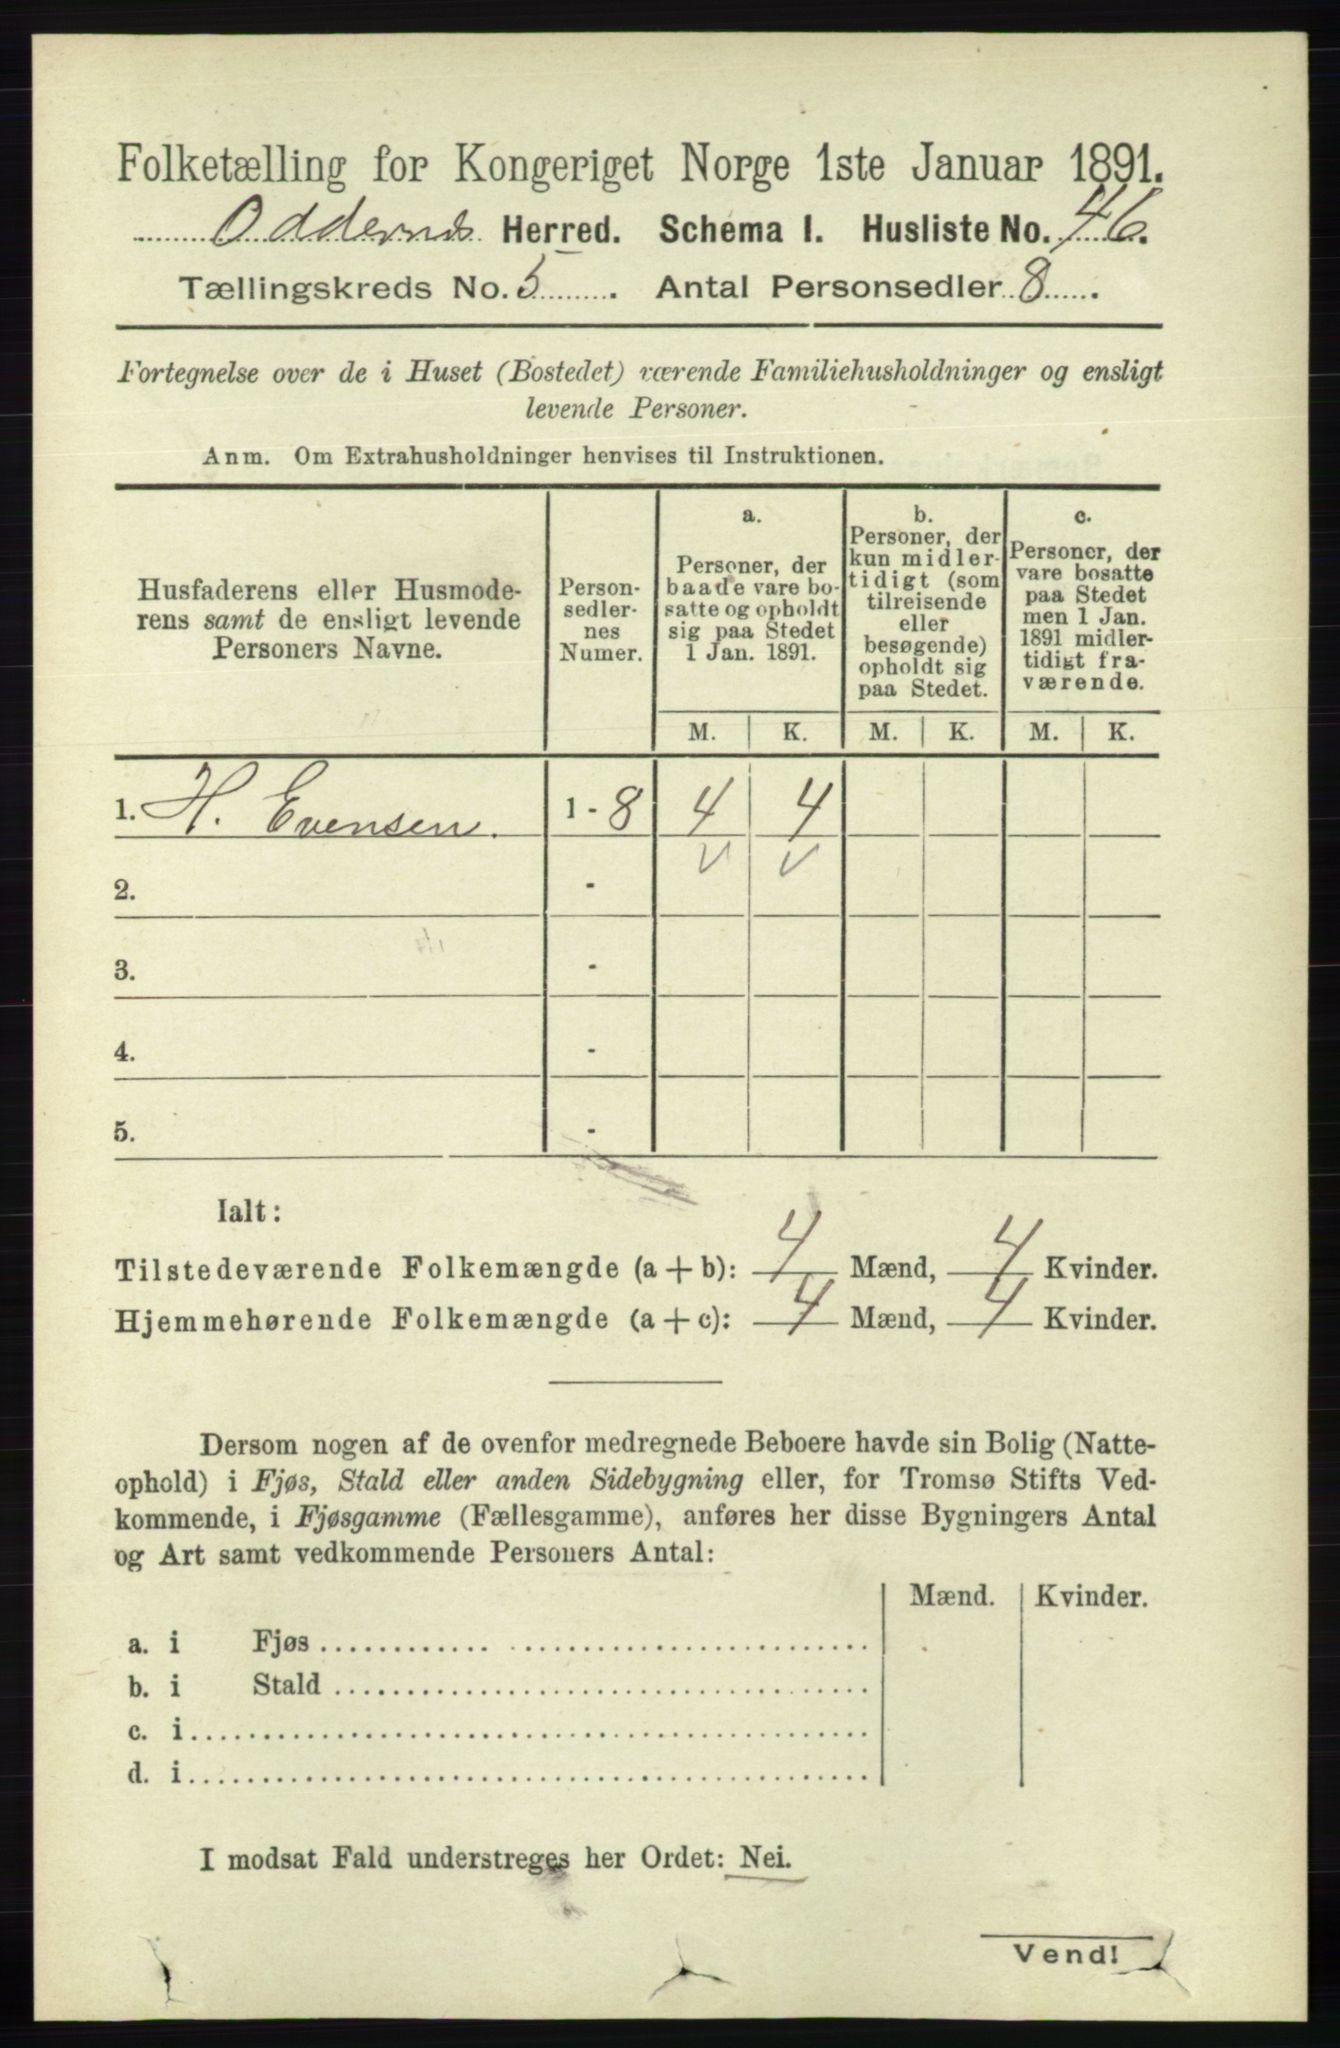 Folketælling for Kongeriget Norge 1ste Januar 1891.
Oddernes Herred. Schema I. Husliste No. 46.
Tællingskreds No. 5. Antal Personsedler 8.
Fortegnelse over de i Huset (Bostedet) værende Familiehusholdninger og ensligt
levende Personer.
Anm. Om Extrahusholdninger henvises til Instruktionen.
Husfaderens eller Husmode-
rens samt de ensligt levende
Personers Navne.
Person-
sedler-
nes
Numer.
a.
Personer, der
baade vare bo-
satte og opholdt
sig paa Stedet
1 Jan. 1891.
b.
Personer, der
kun midler-
tidigt (som
tilreisende
eller
besøgende)
opholdt sig
paa Stedet.
c.
Personer, der
vare bosatte
paa Stedet
men 1 Jan.
1891 midler-
tidigt fra-
værende.
M. K. M. K. M. K.
1. H. Evensen. 1 - 8 4 4
2. -
3. -
4. -
5. -
Ialt:
Tilstedeværende Folkemængde (a + b): 4 Mænd, 4 Kvinder.
Hjemmehørende Folkemængde (a + c): 4 Mænd, 4 Kvinder.
Dersom nogen af de ovenfor medregnede Beboere havde sin Bolig (Natte-
ophold) i Fjøs, Stald eller anden Sidebygning eller, for Tromsø Stifts Ved-
kommende, i Fjøsgamme (Fællesgamme), anføres her disse Bygningers Antal
og Art samt vedkommende Personers Antal:
Mænd. Kvinder.
a. i Fjøs
b. i Stald
c. i
d. i
I modsat Fald understreges her Ordet: Nei.
Vend!